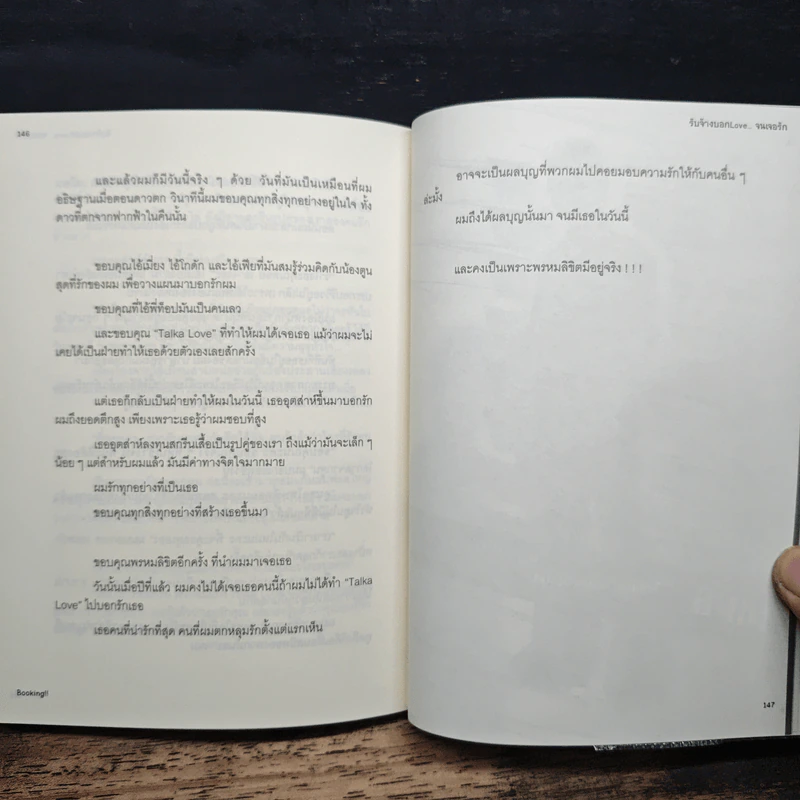 146
และแล้วผมก็มีวันนี้จริง ๆ ด้วย วันที่มันเป็นเหมือนที่ผม
อธิษฐานเมื่อตอนดาวตก วินาทีนี้ผมขอบคุณทุกสิ่งทุกอย่างอยู่ในใจ ทั้ง
ดาวที่ตกจากฟากฟ้าในคืนนั้น
ขอบคุณไอ้เมี่ยง ไอ้โกดัก และไอ้เฟียที่มันสมรู้ร่วมคิดกับน้องตูน
สุดที่รักของผม เพื่อวางแผนมาบอกรักผม
ขอบคุณที่ไอ้พี่ท็อปมันเป็นคนเลว
และขอบคุณ “Talka Love” ที่ทำให้ผมได้เจอเธอ แม้ว่าผมจะไม่
เคยได้เป็นฝ่ายทำให้เธอด้วยตัวเองเลยสักครั้ง
แต่เธอก็กลับเป็นฝ่ายทำให้ผมในวันนี้ เธออุตส่าห์ขึ้นมาบอกรัก
ผมถึงยอดตึกสูง เพียงเพราะเธอรู้ว่าผมชอบที่สูง
เธออุตส่าห์ลงทุนสกรีนเสื้อเป็นรูปคู่ของเรา ถึงแม้ว่ามันจะเล็ก ๆ
น้อย ๆ แต่สำหรับผมแล้ว มันมีค่าทางจิตใจมากมาย
ผมรักทุกอย่างที่เป็นเธอ
ขอบคุณทุกสิ่งทุกอย่างที่สร้างเธอขึ้นมา
ขอบคุณพรหมลิขิตอีกครั้ง ที่นำผมมาเจอเธอ
วันนั้นเมื่อปีที่แล้ว ผมคงไม่ได้เจอเธอคนนี้ถ้าผมไม่ได้ทำ “Talka
Love” ไปบอกรักเธอ
เธอคนที่น่ารักที่สุด คนที่ผมตกหลุมรักตั้งแต่แรกเห็น
Booking!!
รับจ้างบอกLove... จนเจอรัก
อาจจะเป็นผลบุญที่พวกผมไปคอยมอบความรักให้กับคนอื่น ๆ
ล่ะมั้ง
ผมถึงได้ผลบุญนั้นมา จนมีเธอในวันนี้
และคงเป็นเพราะพรหมลิขิตมีอยู่จริง ! ! !
147